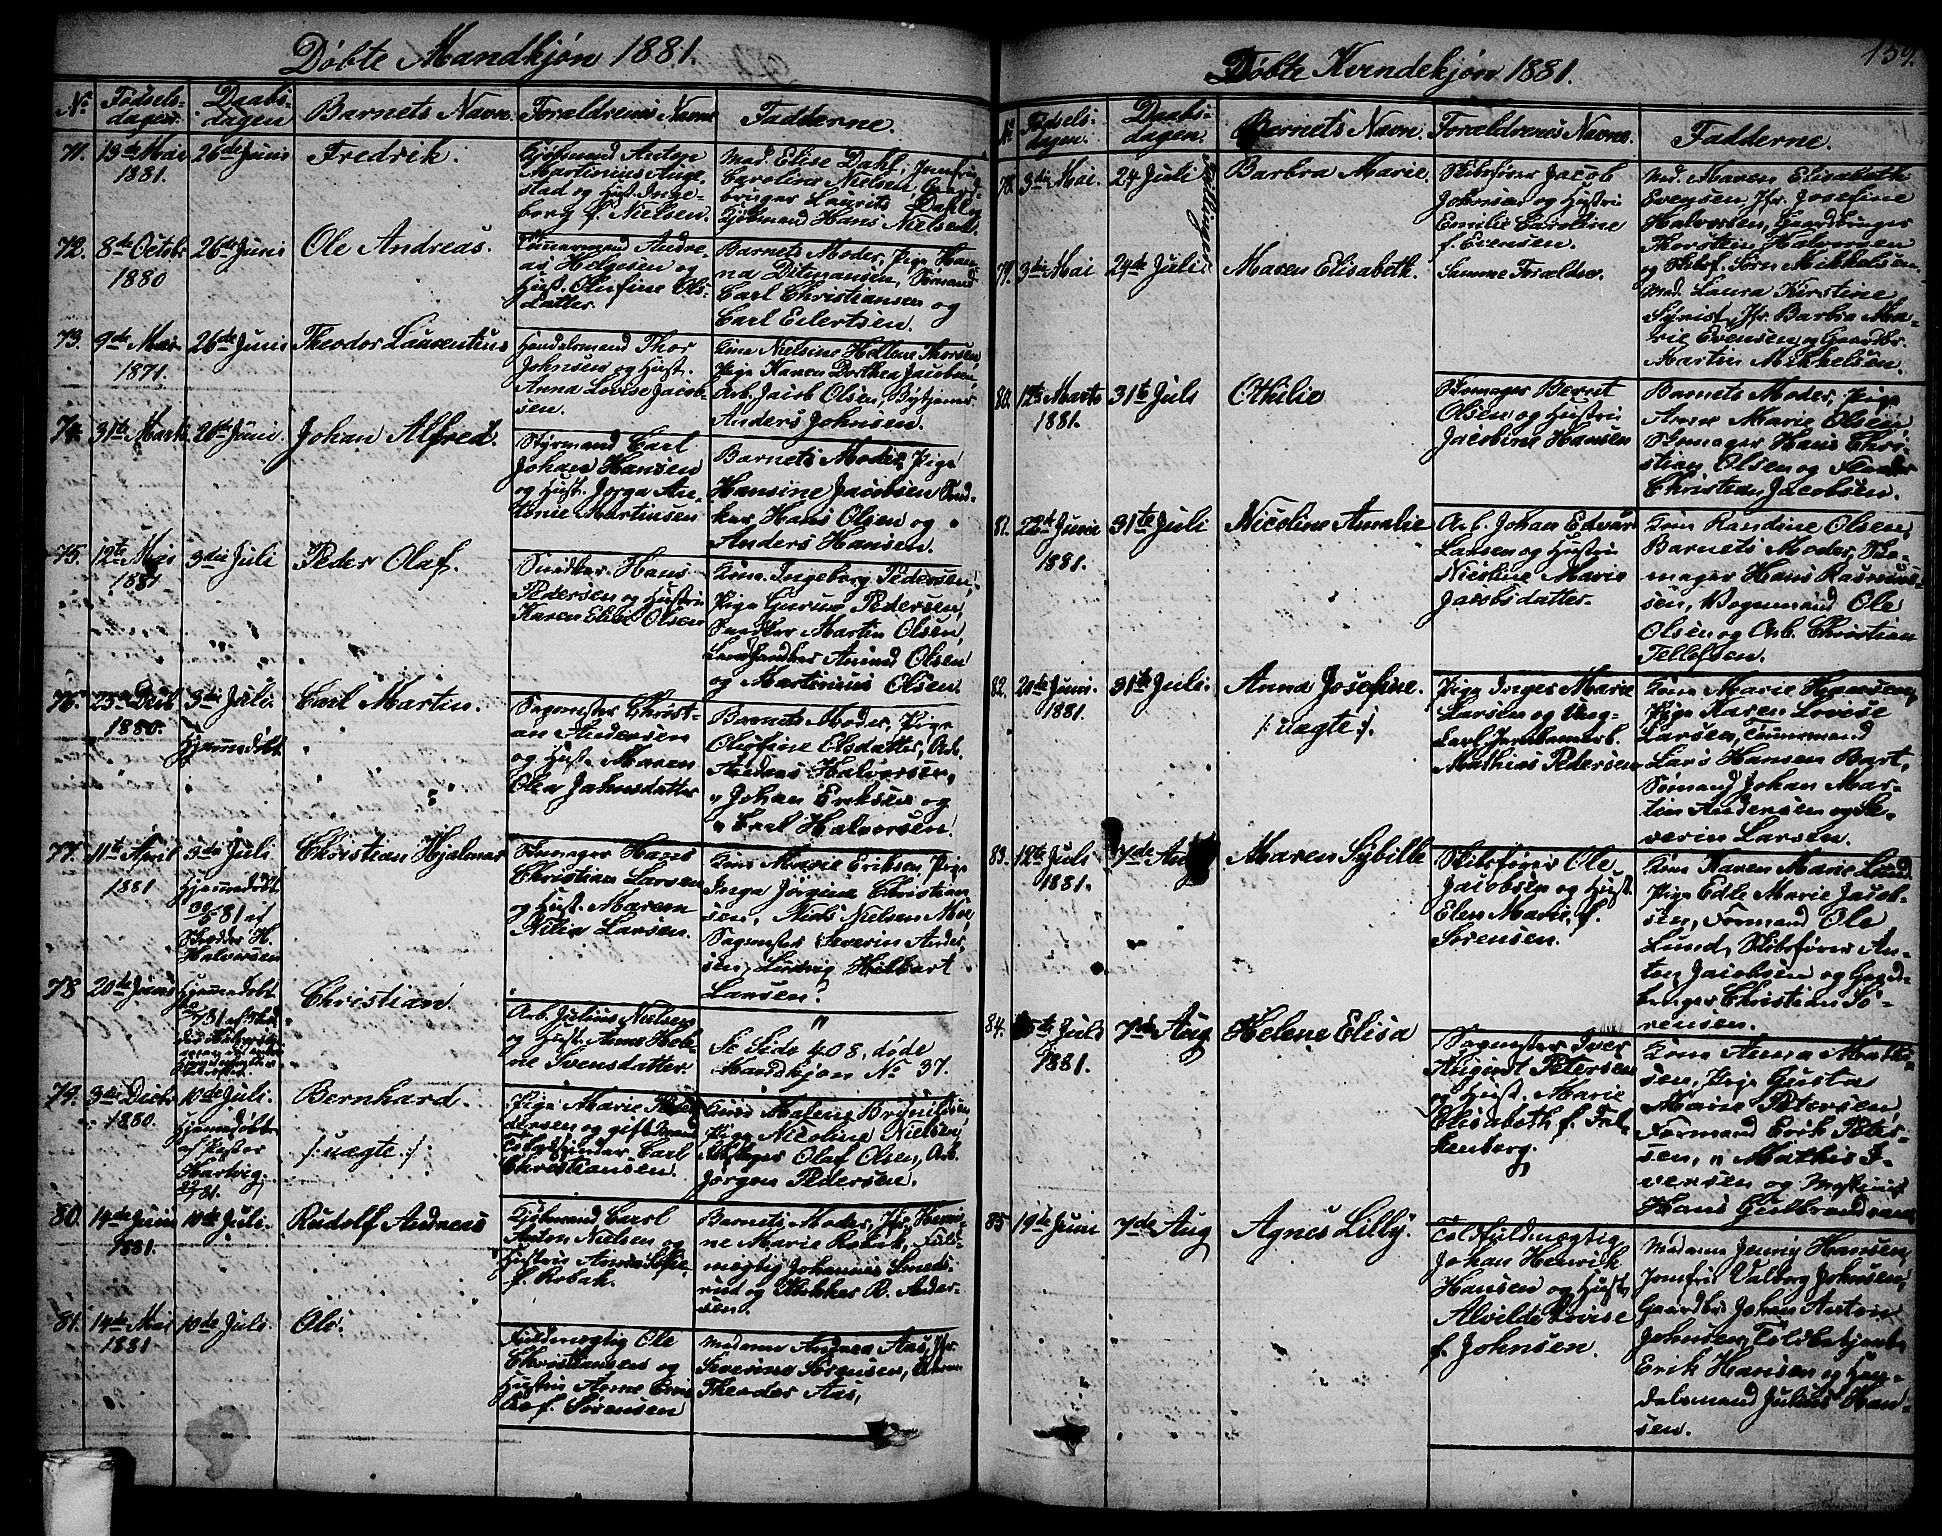 Døbte Mandkjøn 1881.
No Fødselsdagen. Daabsdagen Barnets Navn. Forældrenes Navne Fadderne.
71. 13de Mai 26de Juni Fredrik.
1881.
Kjøbmand Anton
Martinius Auge-
stad og Hust. Inge-
borg f. Nielsen.
Mad. Elise Dahl, Jomfru
Caroline Nielsen, Gaard-
bruger Laurits Dahl og
Kjøbmand Hans Nielsen.
72. 8de Octobr 26de Juni Ole Andreas.
1880
Tømmermand Andre-
as Helgesen og
Hust. Olufine Ols-
datter.
Barnets Moder, Pige Han-
na Ditmansen, Sømand
Carl Christiansen og
Carl Eilertsen.
73. 9de Mai 26de Juni Theodor Laurentius
1871.
Handelsmand Thor
Johnsen og Hust.
Anna Lovise Jacob-
sen.
Kone Nielsine Hellene Thorsen
Pige Karen Dorthea Jacobsen,
Arb. Jacob Olsen, Bytjener
Anders Johnsen.
74. 31te Marts 26de Juni. Johan Alfred.
Styrmand Carl
Johan Hansen
og Hust. Jorga An-
tonie Martinsen
Barnets Moder, Pige
Hansine Jacobsen Snid-
ker Hans Olsen og
Anders Hansen.
75. 12te Mai 3die Juli Peder Olaf.
1881
Snedker Hans
Pedersen og Hustru
Karen Elise Olsen
Kone Ingeborg Pedersen,
Pige Gurine Pedersen,
Snedker Martin Olsen,
Amund Olsen
og Martinius Olsen.
76. 23de Decb 3die Juli. Carl Martin.
1880. Hjemmedøbt
Sagmester Christi-
an Andersen
og Hust. Maren
Olea Jahnsdatter
Barnets Moder, Pige
Olufine Elsdatter, Arb.
Andreas Halvorsen,
" Johan Eriksen og
" Carl Halvorsen.
77. 11te April 3die Juli Christian Hjalmar
1881 Hjemmedøbt
/81 af
H.
Halvorsen
Skomager Hans
Christian Larsen
og Hust. Maren
Nilia Larsen.
Kone Marie Eriksen, Pige
Inga Jorgine Christian-
sen, Niels Nielsen Moe,
Sagmester Severin Ander-
sen, Ludvig Hilbart
Larsen.
78 20de Juni Hjemmedøbt Christian.
/81 af
Arb. Julius Nielsen
og Hust. Anne Hele-
ne Svensdatter.
"
Se Side 408, døde
Mandskjøn No 37.
79. 3die Decbr 10de Juli. Bernhard.
1880. Hjemmedøbt
af Pastor
Hartvig
/81.
/: uægte :/
Pige Marie
dersen og gift Mand
Carl
Christiansen.
Kone Malene Brynildsen,
Pige Nicoline Nielsen,
Olaf Olsen, Arb.
Jørgen Pedersen.
80. 14de Juni 10de Juli. Rudolf Andreas
1881.
Kjøbmand Carl
Anton Nielsen og
Hustru Anna Sofie
f. Robak.
Barnets Moder, Jfr. Hermi-
ne Marie Robak, Fuld-
mægtig Johannes Smeds-
rud og Klokker R. Ander-
sen.
81. 14de Mai 10de Juli. Ole.
1881
Fuldmægtig Ole
Christiansen og
Hustru Anne
f. Sørensen
Madame Andrea Aas, Jfr.
Severine Sørgensen,
Theodor Aas,
159.
Døbte Kvindekjøn 1881.
No Fødselsdagen. Daabsdagen. Barnets Navn. Forældrenes Navne. Fadderne.
78. 3die Mai. 24 Juli Tvillinger Barbra Marie.
Skibsfører Jacob
Johnsen og Hustru
Emilie Caroline
f. Evensen.
Mad. Maren Elisabeth
Evensen, Jfr. Josefine
Halvorsen, Gaardbruger
Thorstein Halvorsen
og Skibsf. Sørn Mikkelsen.
79. 3die Mai 24de Juli Maren Elisabeth.
Samme Forældre.
Mad. Laura Kirstine
Synist, Jfr. Barbra Ma-
rie Evensen og Gaardbr.
Martin Mikkelsen.
80. 12te Marts 31te Juli Othilie
1881.
Skomager Bernt
Olsen og Hustru
Jacobine Hansen
Barnets Moder, Pige
Anne Marie Olsen
Skomager Hans Chri-
stian Olsen og
Christian Jacobsen.
81. 22de Juni 31te Juli Nicoline Amalie
1881.
Arb. Johan Edvar
Larsen og Hustru
Nicoline Marie
Jacobsdatter.
Kone Randine Olsen,
Barnets Moder, Sko-
mager Hans Rasmus-
sen, Vognmand Ole
Olsen og Arb. Christian
Tellefsen.
82. 20de Juni. 31te Juli. Anna Josefine.
1881.
/: uægte :/.
Pige Inger Marie
Larsen og Ung-
karl Jernbanearb.
Mathias Pedersen
Kone Marie Hansen,
Pige Karen Lovise
Larsen, Tømmermand
Lars Hansen Bart,
Sømand Johan Mar-
tin Andersen og Se-
verin Larsen.
83. 12te Juli 7de Aug Maren Sybille
1881.
Skibsfører Ole
Jacobsen og Hust.
Elen Marie, f.
Sørensen.
Kone Karen Marie Lund
Pige Edle Marie Jacob-
sen, Formand Ole
Lund, Skibsfører An-
ton Jacobsen og Gaard-
bruger Christian Sø-
rensen.
84. 5te Juli 7de Aug Helene Elisa
1881.
Sagmester Iver
August Petersen
og Hust. Marie
Elisabeth f. Fal-
kenberg.
Kone Anna Mathi-
sen, Pige Gusta
Marie Petersen,
Formand Erik Peter-
sen, " Mathis I-
versen og Maskinist
Hans Gulbrandsen
85 19de Juni 7de Aug Agnes Lilly.
Toldfuldmægtig
Johan Henrik
Hansen og Hust.
Alvilde Lovise
f. Johnsen.
Madame Jenny Hansen,
Jomfru Valborg Johnsen,
Gaardbr. Johan Anton
Johnsen, Toldbetjent
Erik Hansen og Han-
delsmand Julius Han-
sen.